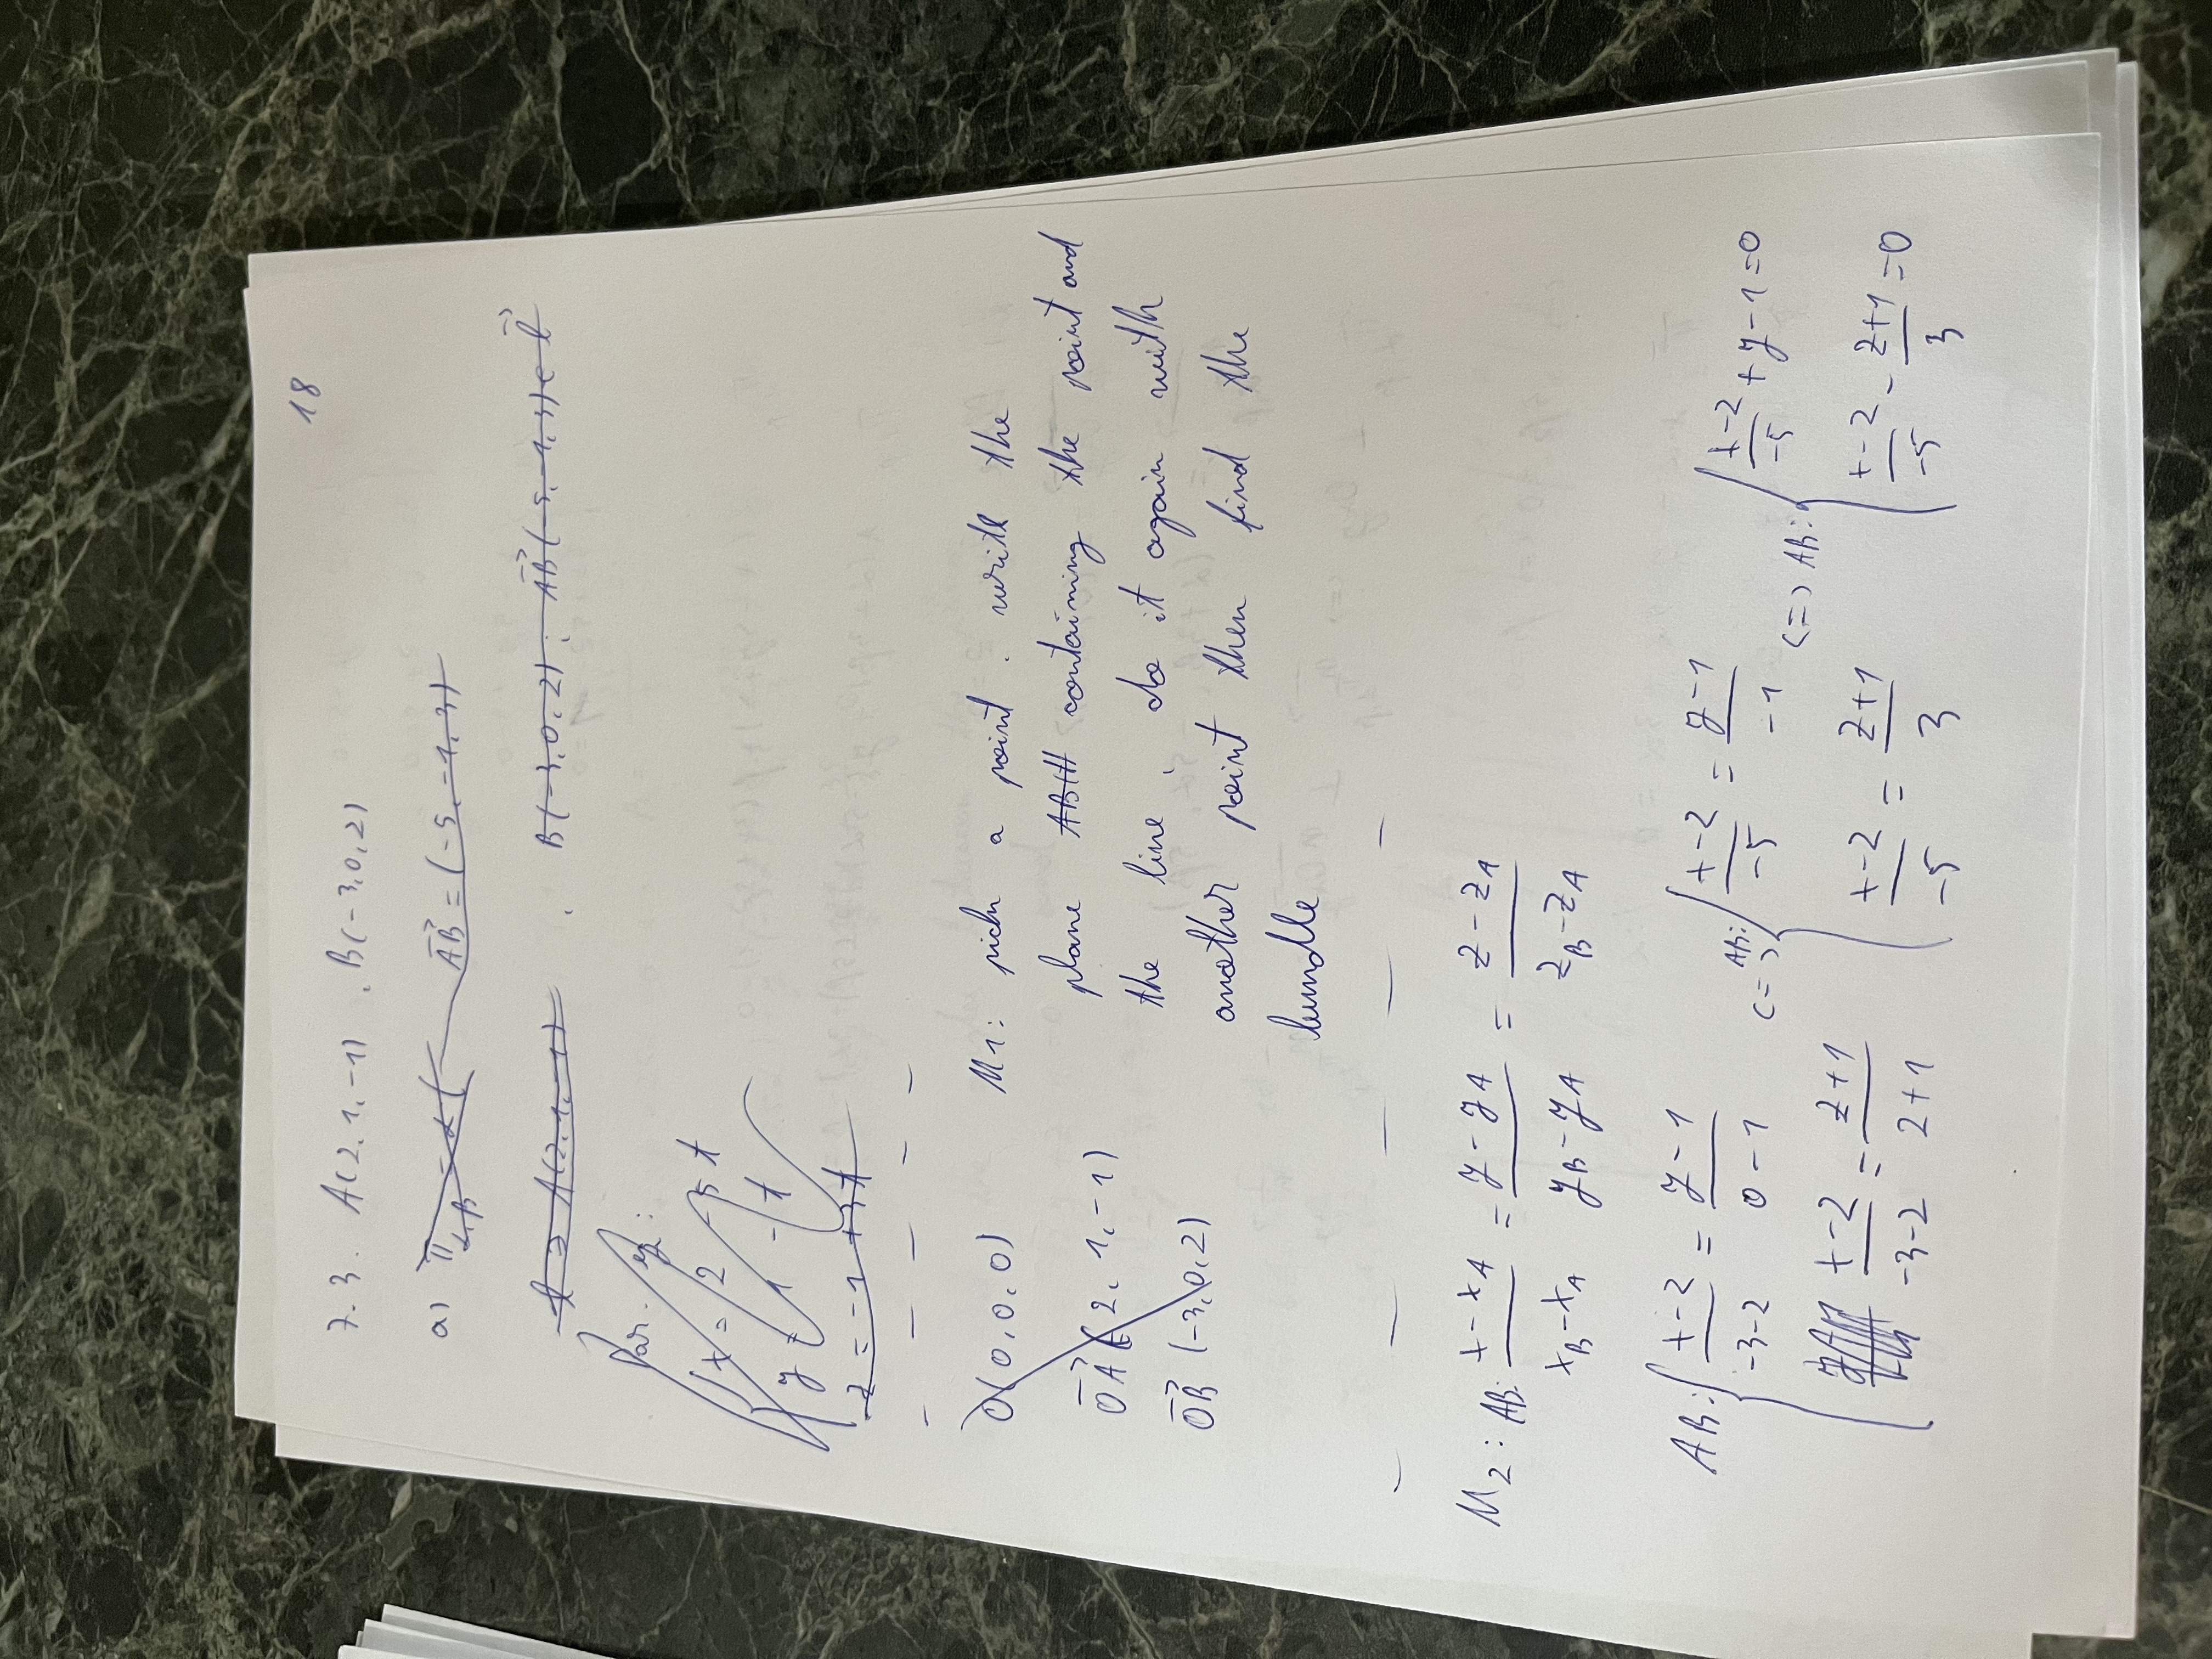 18
7.3. A(2,1,-1), B(-3,0,2)
a) π_{α,β} = α( AB⃗ = (-5,-1,3)
l ∋ A(2,1,-1), B(-3,0,2); AB⃗(-5,-1,3) ∈ l⃗
Par. eq:
x = 2 - 5t
y = 1 - t
z = -1 + 3t
O(0,0,0)
OA⃗(2,1,-1)
OB⃗(-3,0,2)
M1: pick a point. write the
plane containing the point and
the line, do it again with
another point then find the
bundle
M2: AB: (x-x_A)/(x_B-x_A) = (y-y_A)/(y_B-y_A) = (z-z_A)/(z_B-z_A)
AB: { (x-2)/(-3-2) = (y-1)/(0-1) <=> AB: { (x-2)/(-5) = (y-1)/(-1) <=> AB: { (x-2)/(-5) + y-1=0
(x-2)/(-3-2) = (z+1)/(2+1) (x-2)/(-5) = (z+1)/3 (x-2)/(-5) - (z+1)/3 =0